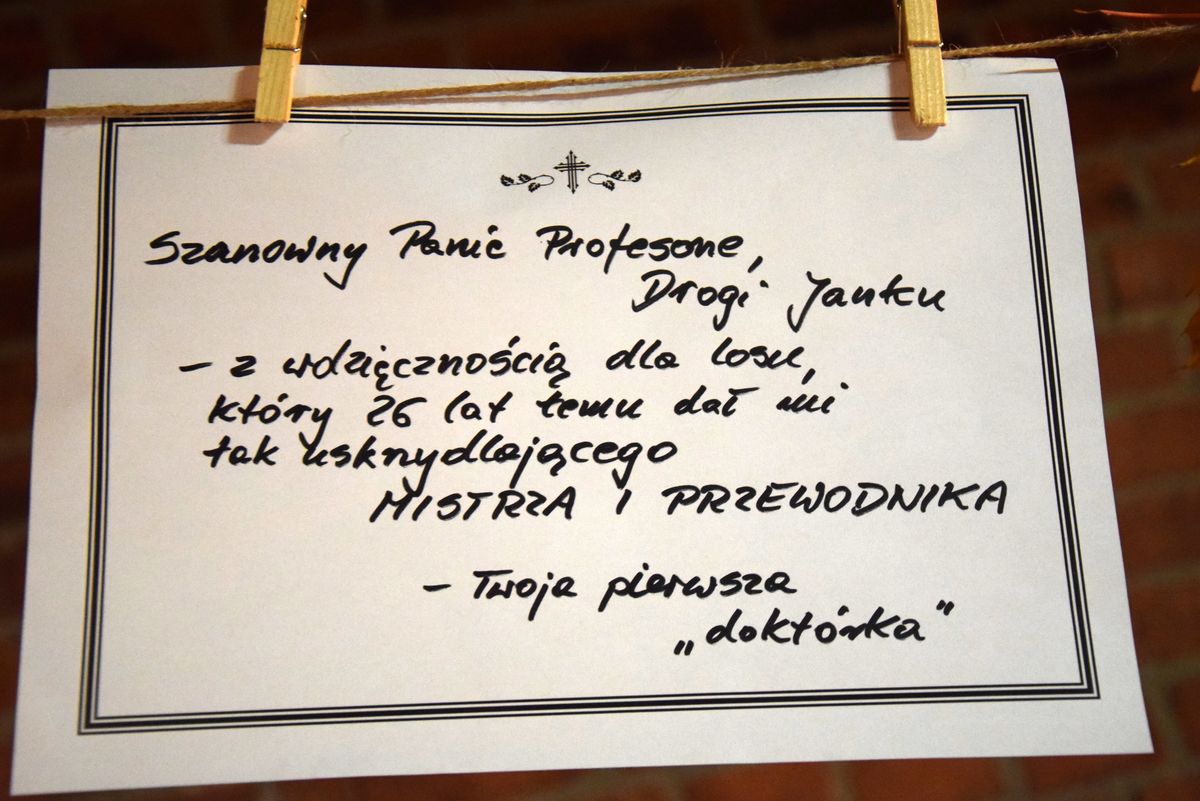 Szanowny Panie Profesorze,
Drogi Janku
– z wdzięcznością dla losu,
który 26 lat temu dał mi
tak uskrzydlającego
MISTRZA I PRZEWODNIKA
– Twoja pierwsza
„doktórka”